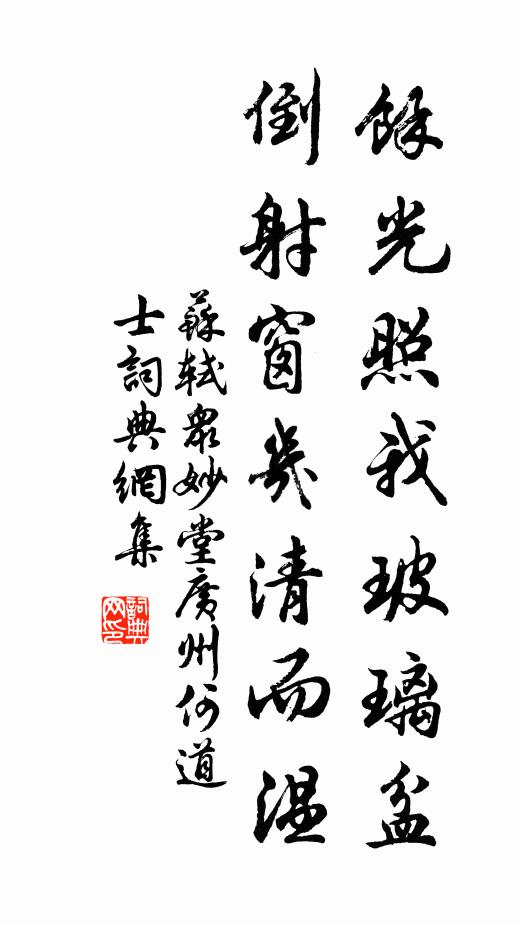 餘光照我玻璃盆
倒射窗幾清而温
蘇軾衆妙堂廣州何道
士詞典網集
詞典
网印